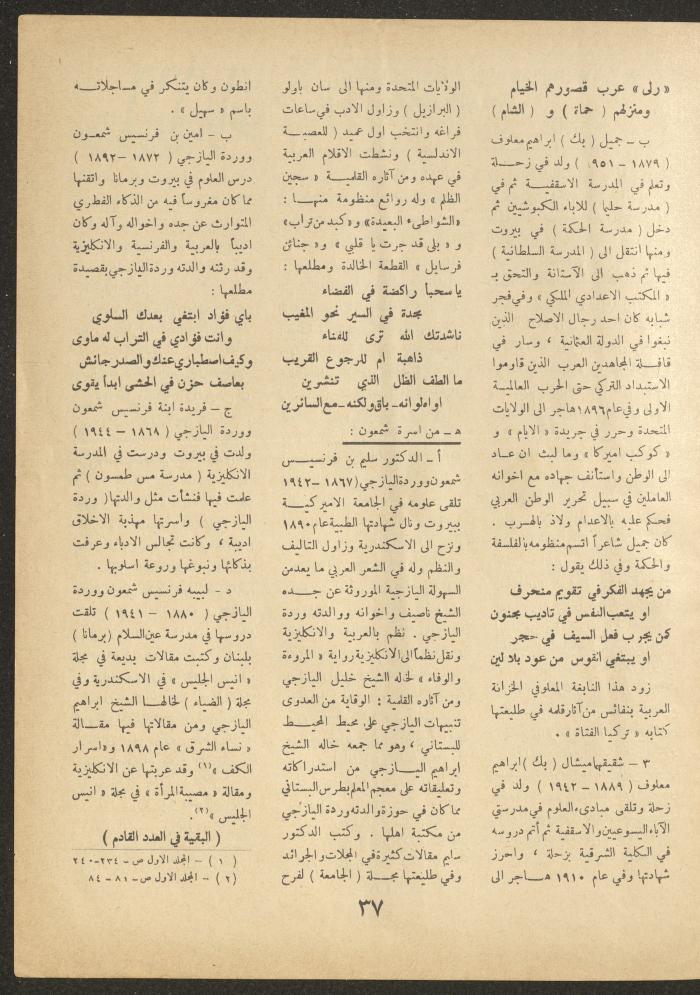 « رلى » عرب قصورهم الخيام
ومنزلهم ( حماة ) و ( الشام )
ب – جميل ( بك ) ابراهيم معلوف
( ١٨٧٩ – ٩٥١ ) ولد في زحلة
وتعلم في المدرسة الاسقفية ثم في
( مدرسة حليا ) للاباء الكبوشيين ثم
دخل ( مدرسة الحكمة ) في بيروت
ومنها انتقل الى ( المدرسة السلطانية )
فيها ثم ذهب الى الآستانة والتحق بـ
« المكتب الاعدادي الملكي » وفي فجر
شبابه كان احد رجال الاصلاح الذين
نبغوا في الدولة العثمانية ، وسار في
قافلة المجاهدين العرب الذين قاوموا
الاستبداد التركي حتى الحرب العالمية
الاولى وفي عام ١٨٩٦ هاجر الى الولايات
المتحدة وحرر في جريدة « الايام » و
« كوكب اميركا » وما لبث ان عاد
الى الوطن واستأنف جهاده مع اخوانه
العاملين في سبيل تحرير الوطن العربي
فحكم عليه بالاعدام ولاذ بالهرب .
كان جميل شاعراً اتسم منظومه بالفلسفة
والحكمة وفي ذلك يقول :
من يجهد الفكر في تقويم منحرف
او يتعب النفس في تاديب مجنون
كمن يجرب فعل السيف في حجر
او يبتغي القوس من عود بلا لين
زود هذا النابغة المعلوفي الخزانة
العربية بنفائس من آثار قلمه في طليعتها
كتابه « تركيا الفتاة » .
٣ – شقيقهما ميشال ( بك ) ابراهيم
معلوف ( ١٨٨٩ – ١٩٤٢ ) ولد في
زحلة وتلقى مبادىء العلوم في مدرستي
الآباء اليسوعيين والاسقفية ثم أتم دروسه
في الكلية الشرقية بزحلة ، واحرز
شهادتها وفي عام ١٩١٠ هاجر الى
الولايات المتحدة ومنها الى سان باولو
( البرازيل ) وزاول الادب في ساعات
فراغه وانتخب اول عميد ( للعصبة
الاندلسية ) ونشطت الاقلام العربية
في عهده ومن آثاره القلمية « سجين
الظلم » وله روائع منظومة منها :
« الشواطىء البعيدة » و « كبد من تراب »
و « بلى قد جرت يا قلبي » و « جنائن
فرسايل » القطعة الخالدة ومطلعها :
يا سحباً راكضة في الفضاء
مجدة في السير نحو المغيب
ناشدتك الله ترى للفناء
ذاهبة ام للرجوع القريب
ما الطف الظل الذي تنشرين
اواه لو انه – باق ولكنه – مع السائرين
هـ – من اسرة شمعون :
أ – الدكتور سليم بن فرنسيس
شمعون ووردة اليازجي ( ١٨٦٧ – ١٩٤٢
تلقى علومه في الجامعة الاميركية
ببيروت ونال شهادتها الطبية عام ١٨٩٠
ونزح الى الاسكندرية وزاول التاليف
والنظم وله في الشعر العربي ما يعد من
السهولة اليازجية الموروثة عن جده
الشيخ ناصيف واخوانه ووالدته وردة
اليازجي . نظم بالعربية والانكليزية
ونقل نظماً الى الانكليزية رواية « المروءة
والوفاء » لخاله الشيخ خليل اليازجي
ومن آثاره القلمية : الوقاية من العدوى
تنبيهات اليازجي على محيط المحيط
للبستاني ، وهو مما جمعه خاله الشيخ
ابراهيم اليازجي من استدراكاته
وتعليقاته على معجم المعلم بطرس البستاني
مما كان في حوزة والدته وردة اليازجي
من مكتبة اهلها . وكتب الدكتور
سليم مقالات كثيرة في المجلات والجرائد
وفي طليعتها مجلة ( الجامعة ) لفرح
انطون وكان يتنكر في مساجلاته
باسم « سهيل » .
ب – امين بن فرنسيس شمعون
ووردة اليازجي ( ١٨٧٢ – ١٨٩٢ )
درس العلوم في بيروت وبرمانا واتقنها
مما كان مغروساً فيه من الذكاء الفطري
المتوارث عن جده واخواله وآله وكان
اديباً بالعربية والفرنسية والانكليزية
وقد رثته والدته وردة اليازجي بقصيدة
مطلعها :
باي فؤاد ابتغي بعدك السلوي
وانت فؤادي في التراب له ماوى
وكيف اصطباري عنك والصدر جائش
بعاصف حزن في الحشى ابداً يقوى
ج – فريدة ابنة فرنسيس شمعون
ووردة اليازجي ( ١٨٦٨ – ١٩٤٤ )
ولدت في بيروت ودرست في المدرسة
الانكليزية ( مدرسة مس طمسون ) ثم
علمت فيها فنشأت مثل والدتها ( وردة
اليازجي ) واسرتها مهذبة الاخلاق
اديبة ، وكانت تجالس الادباء وعرفت
بذكائها ونبوغها وروعة اسلوبها .
د – لبيبه فرنسيس شمعون ووردة
اليازجي ( ١٨٨٠ – ١٩٤١ ) تلقت
دروسها في مدرسة عين السلام ( برمانا )
بلبنان وكتبت مقالات بديعة في مجلة
« انيس الجليس » في الاسكندرية وفي
مجلة ( الضياء ) لخالها الشيخ ابراهيم
اليازجي ومن مقالاتها فيها مقالة
« نساء الشرق » عام ١٨٩٨ و « اسرار
الكف » (١) وقد عربتها عن الانكليزية
ومقالة « مصيبة المرأة » في مجلة « انيس
الجليس » (٢) .
( البقية في العدد القادم )
( ١ ) – المجلد الاول ص – ٢٣٤ – ٢٤٠
( ٢ ) – المجلد الاول ص – ٨١ – ٨٤
٣٧